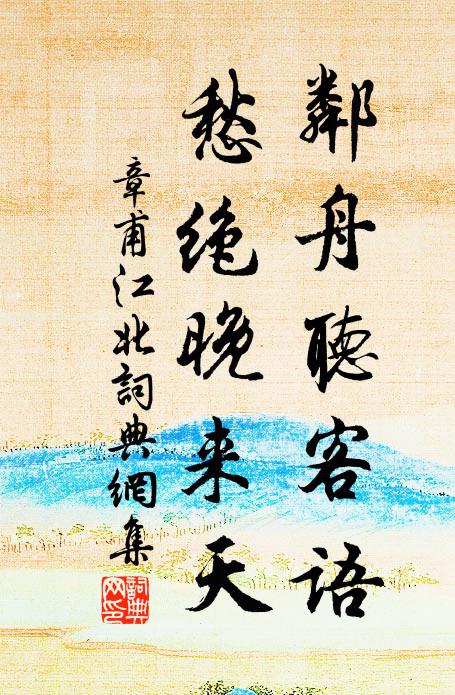 鄰舟聽客语
愁绝晚来天
章甫江北詞典網集
詞典网印